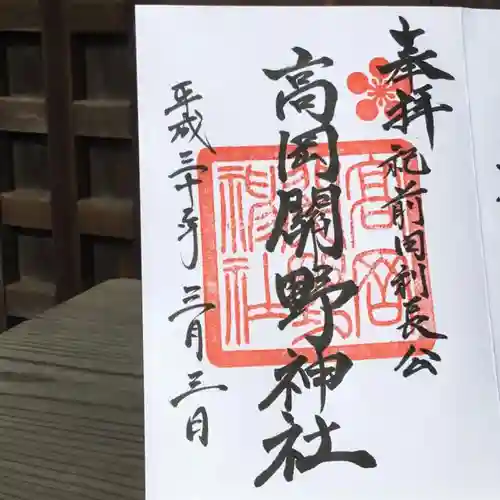 奉拝
祀前田利長公
高岡關野神社
高岡關野神社
平成三十年 三月三日